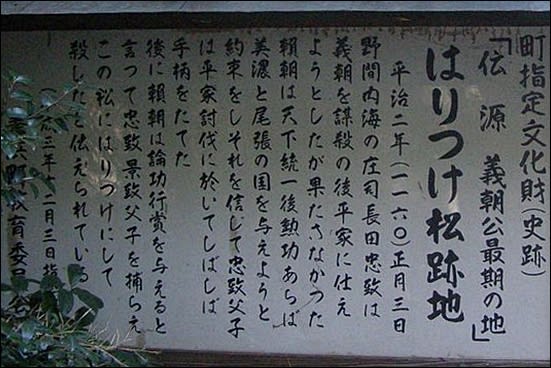 町指定文化財(史跡)
「伝 源 義朝公最期の地」
はりつけ松跡地
平治二年(一一六〇)正月三日
野間内海の庄司長田忠致は
義朝を謀殺の後平家に仕え
ようとしたが果たさなかつた
頼朝は天下統一後勲功あらば
美濃と尾張の国を与えようと
約束をしそれを信じて忠致父子
は平家討伐に於いてしばしば
手柄をたてた
後に頼朝は論功行賞を与えると
言つて忠致景致父子を捕らえ
この松にはりつけにして
殺したと伝えられている
三年 二月三日指
町教育委員会